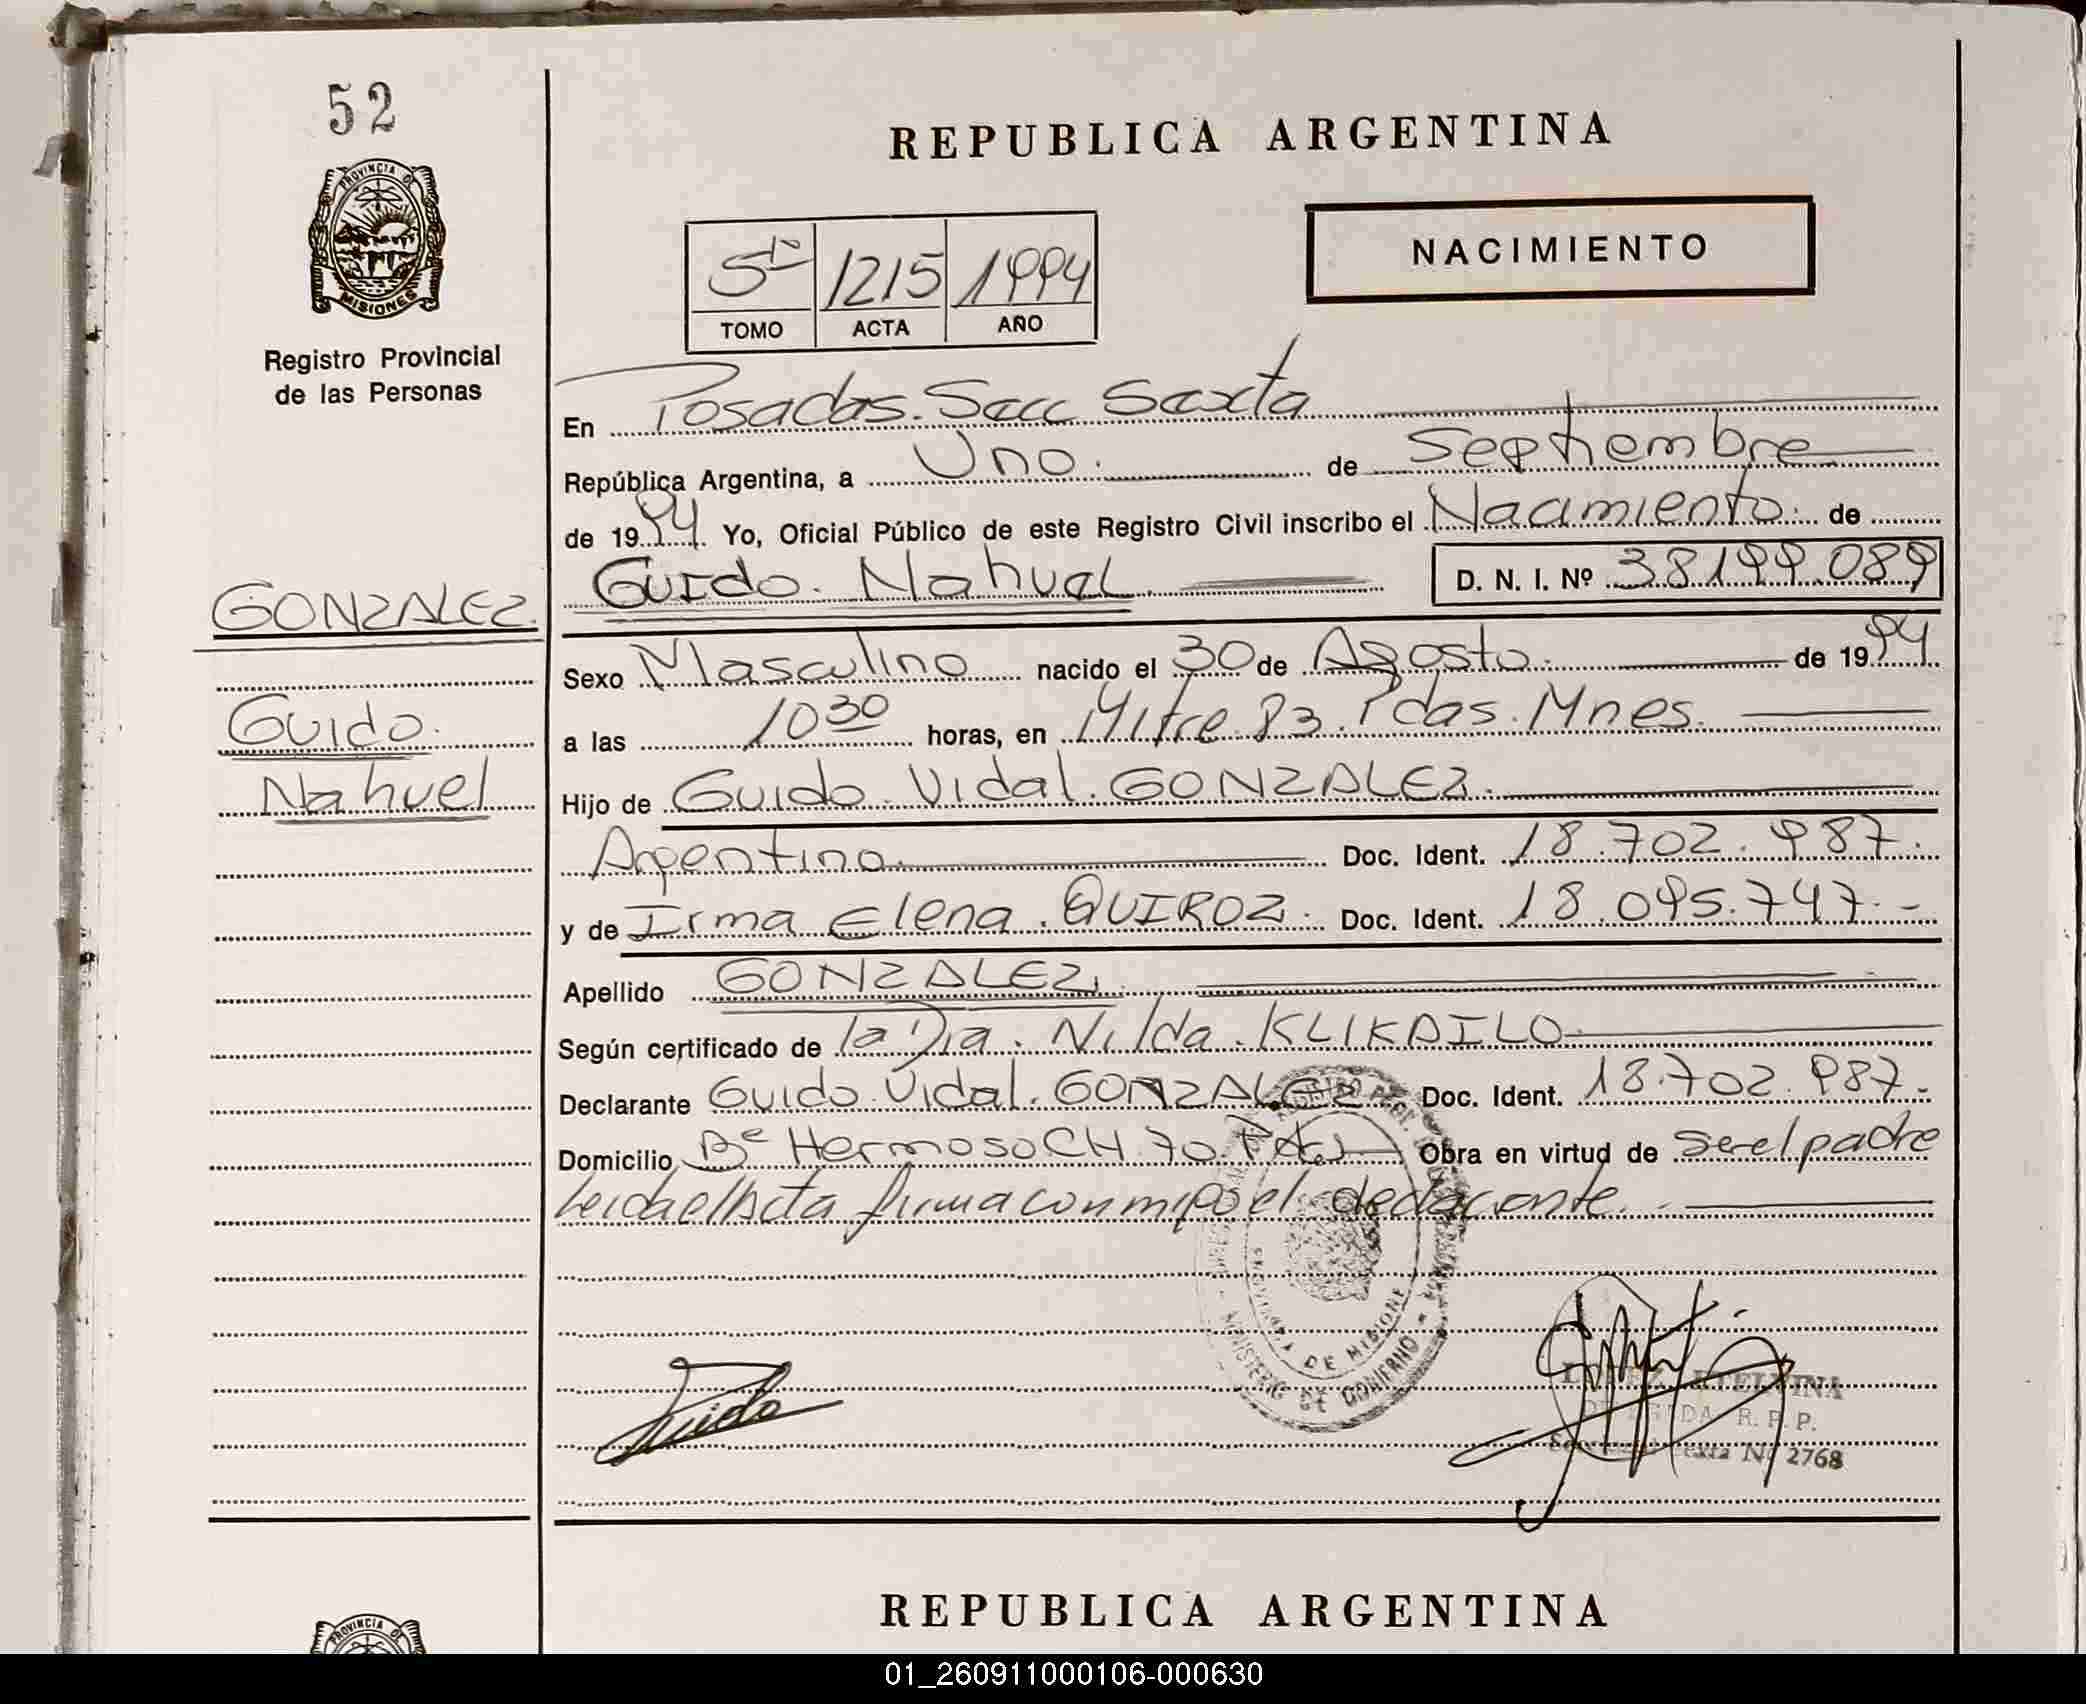 52
PROVINCIA DE
MISIONES
Registro Provincial
de las Personas
GONZALEZ.
Guido.
Nahuel
REPUBLICA ARGENTINA
5to 1215 1994
TOMO ACTA AÑO
NACIMIENTO
En Posadas. Secc Sexta
República Argentina, a Uno. de Septiembre
de 1994. Yo, Oficial Público de este Registro Civil inscribo el Nacimiento. de
Guido. Nahuel. D. N. I. Nº 38.199.089
Sexo Masculino nacido el 30 de Agosto. de 1994
a las 10 30 horas, en Mitre 83. Pdas. Mnes.
Hijo de Guido. Vidal. GONZALEZ.
Argentino. Doc. Ident. 18.702.987.
y de Irma Elena. QUIROZ. Doc. Ident. 18.095.747.-
Apellido GONZALEZ.
Según certificado de la Dra. Nilda. KLIKAILO
Declarante Guido Vidal. GONZALEZ Doc. Ident. 18.702.987.
Domicilio Bº Hermoso CH 70. Pdas Obra en virtud de ser el padre
Leida el Acta firma conmigo el declarante.
PROVINCIA DE MISIONES
MINISTERIO DE GOBIERNO
Guido
LOPEZ ETELVINA
DELEGADA R. P. P.
Seccional Sexta Nº 2768
REPUBLICA ARGENTINA
PROVINCIA DE
01_260911000106-000630